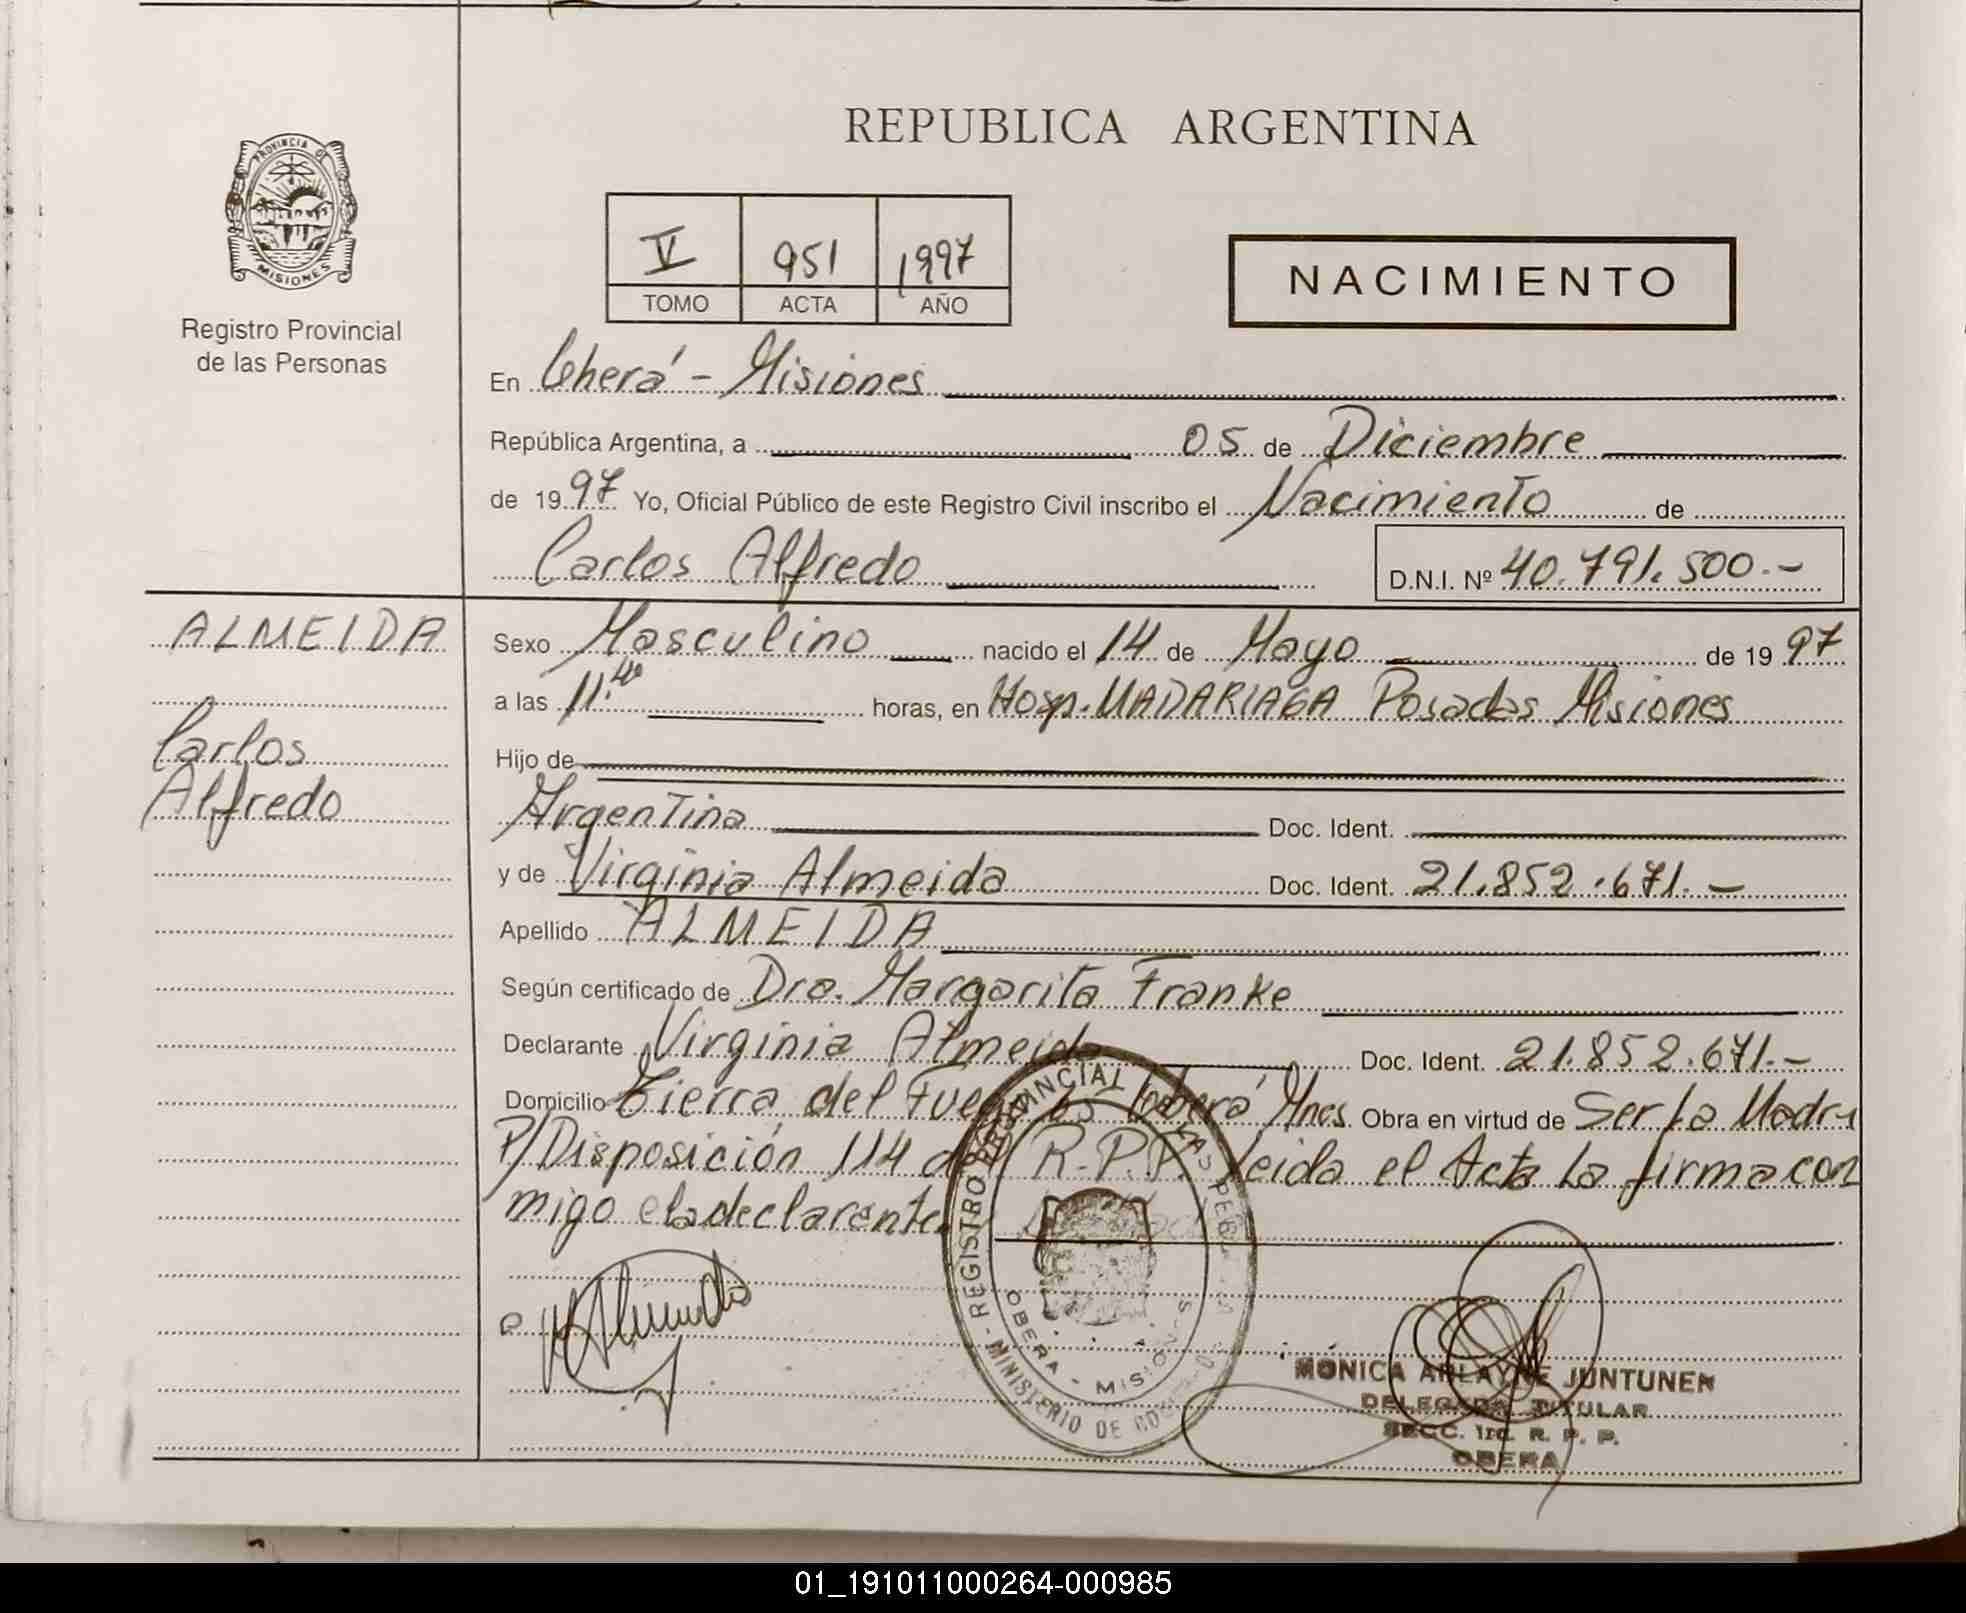 REPUBLICA ARGENTINA
PROVINCIA DE
MISIONES
Registro Provincial
de las Personas
V 951 1997
TOMO ACTA AÑO
NACIMIENTO
En Oberá - Misiones
República Argentina, a 05 de Diciembre
de 1997 Yo, Oficial Público de este Registro Civil inscribo el Nacimiento de
Carlos Alfredo D.N.I. Nº 40.791.500.-
ALMEIDA
Carlos
Alfredo
Sexo Masculino nacido el 14 de Mayo de 1997
a las 11.40 horas, en Hosp. MADARIAGA Posadas Misiones
Hijo de
Argentina Doc. Ident.
y de Virginia Almeida Doc. Ident. 21.852.671.-
Apellido ALMEIDA
Según certificado de Dra. Margarita Franke
Declarante Virginia Almeida Doc. Ident. 21.852.671.-
Domicilio Tierra del Fuego Oberá Mnes. Obra en virtud de Ser La Madre
P/Disposición 114 R.P.P. Leida el Acta La firma con
migo la declarante
REGISTRO PROVINCIAL DE LAS PERSONAS
MINISTERIO DE
OBERA - MISIONES
MONICA ARLAYNE JUNTUNEN
DELEGADA TITULAR
SECC. 1ra. R. P. P.
OBERA
01_191011000264-000985